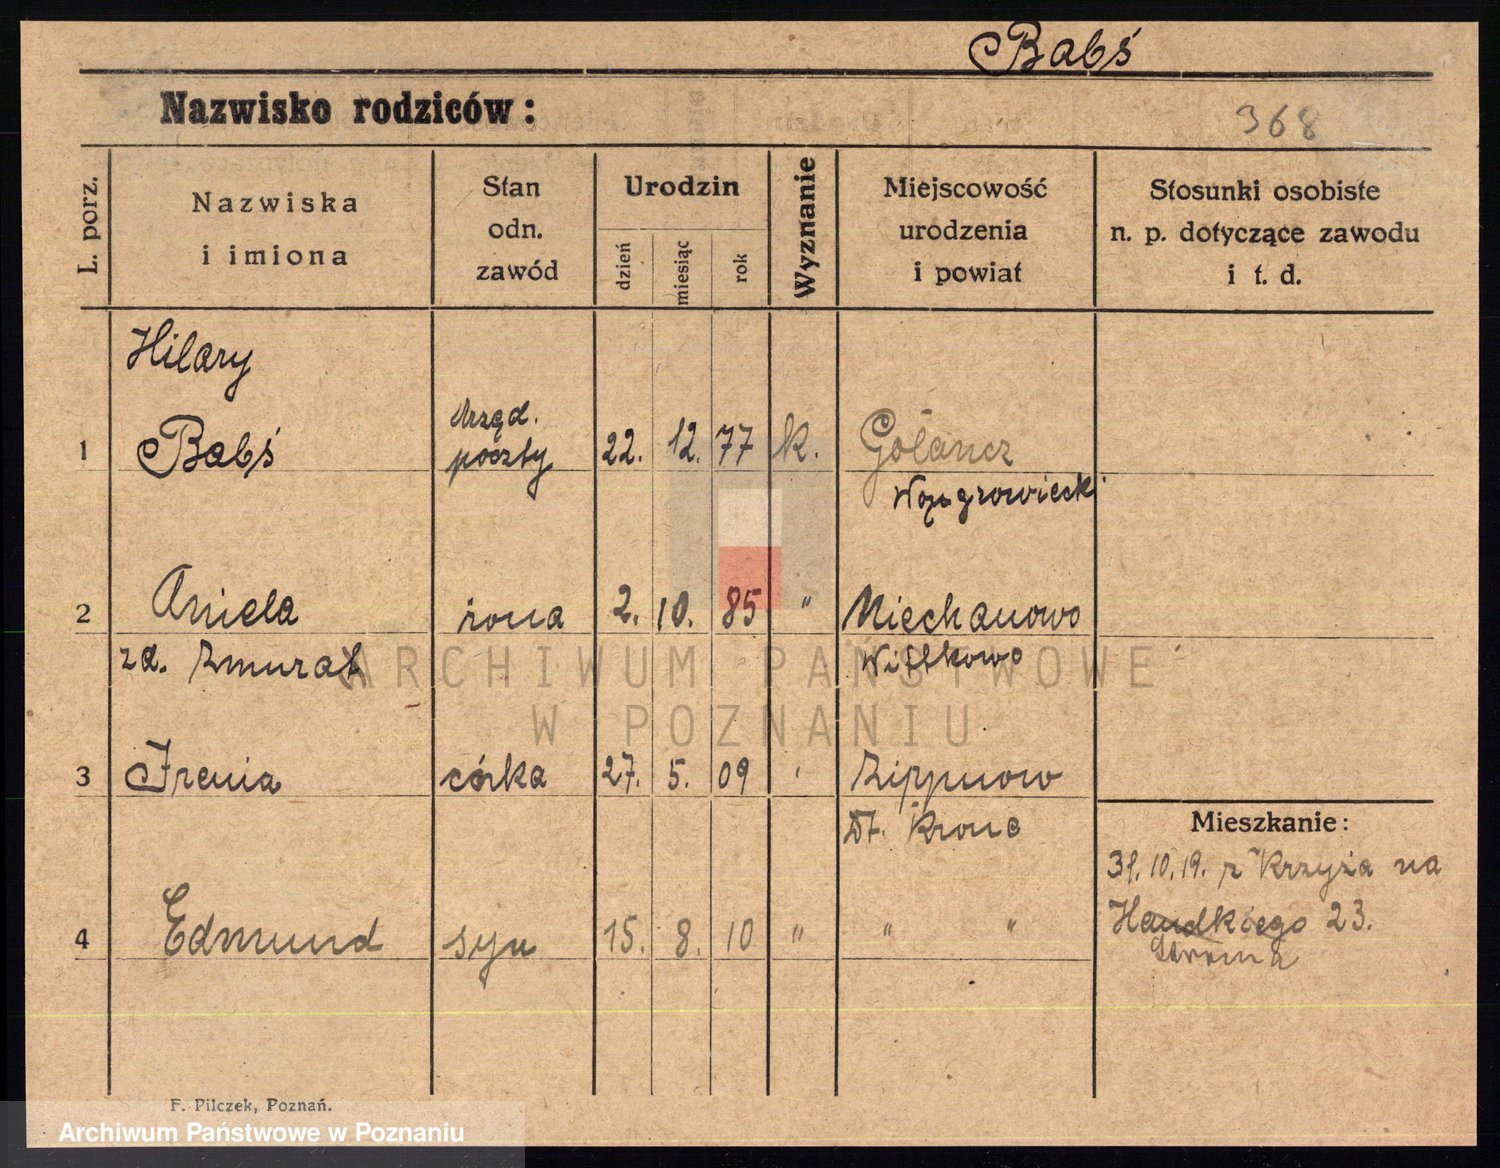 Babś
Nazwisko rodziców:
368
L. porz.
Nazwiska
i imiona
Stan
odn.
zawód
Urodzin
dzień
miesiąc
rok
Wyznanie
Miejscowość
urodzenia
i powiat
Stosunki osobiste
n. p. dotyczące zawodu
i t. d.
Hilary
1 Babś Urzęd. poczty 22. 12. 77 k. Gołańcz
Wągrowiecki
2 Aniela żona 2. 10. 85 " Miechanowo
zd. Witkowo
3 Irenia córka 27. 5. 09 ' Zippnow
Dt. Krone
Mieszkanie:
31.10.19. z Krzyża na
4 Edmund syn 15. 8. 10 " " "
23.
Stroma
ARCHIWUM PAŃSTWOWE
W POZNANIU
F. Pilczek, Poznań.
Archiwum Państwowe w Poznaniu